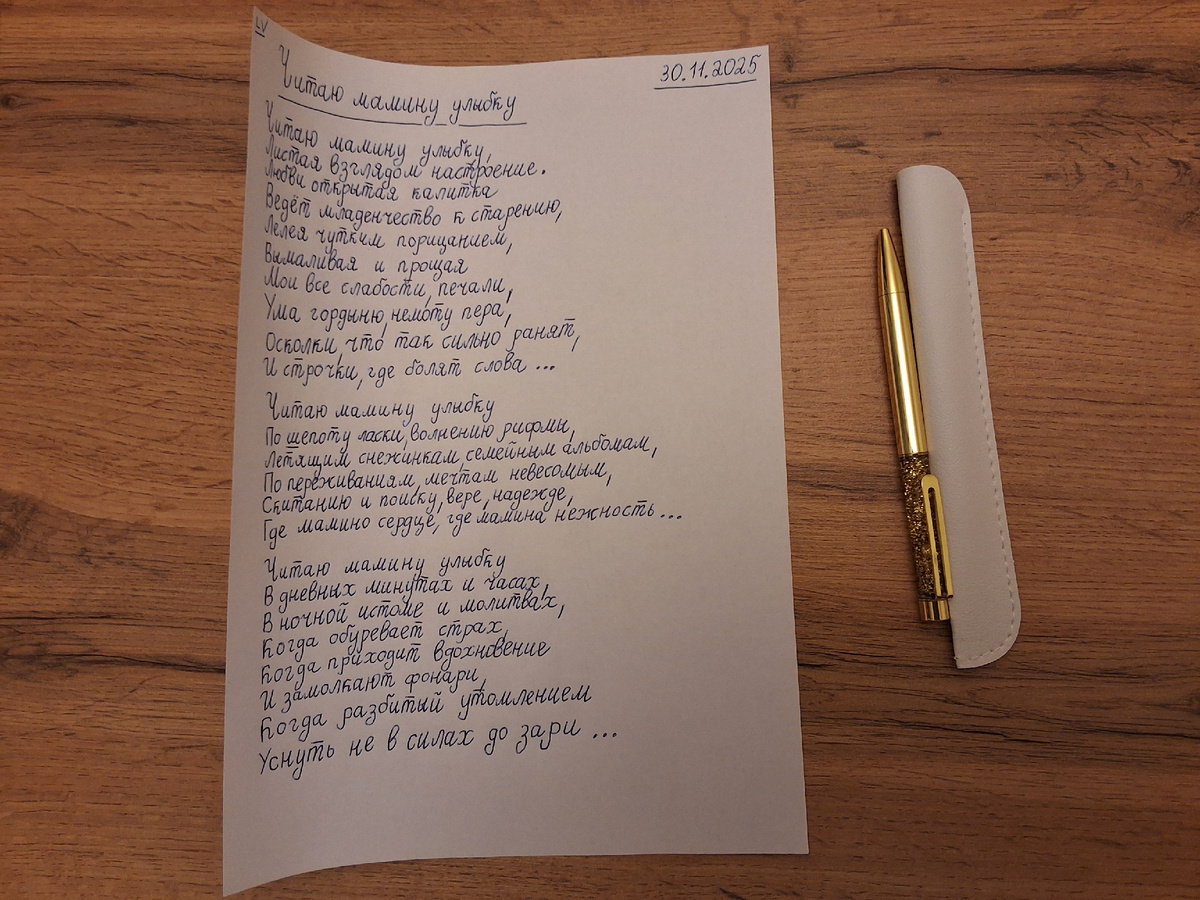 LV
30.11.2025
Читаю мамину улыбку
Читаю мамину улыбку,
Листая взглядом настроение.
Любви открытая калитка
Ведёт младенчество к старению,
Лелея чутким порицанием,
Вымаливая и прощая
Мои все слабости, печали,
Ума гордыню, немоту пера,
Осколки, что так сильно ранят,
И строчки, где болят слова ...
Читаю мамину улыбку
По шепоту ласки, волнению рифмы,
Летящим снежинкам, семейным альбомам,
По переживаниям, мечтам невесомым,
Скитанию и поиску, вере, надежде,
Где мамино сердце, где мамина нежность ...
Читаю мамину улыбку
В дневных минутах и часах,
В ночной истоме и молитвах,
Когда обуревает страх,
Когда приходит вдохновение
И замолкают фонари,
Когда разбитый утомлением
Уснуть не в силах до зари ...